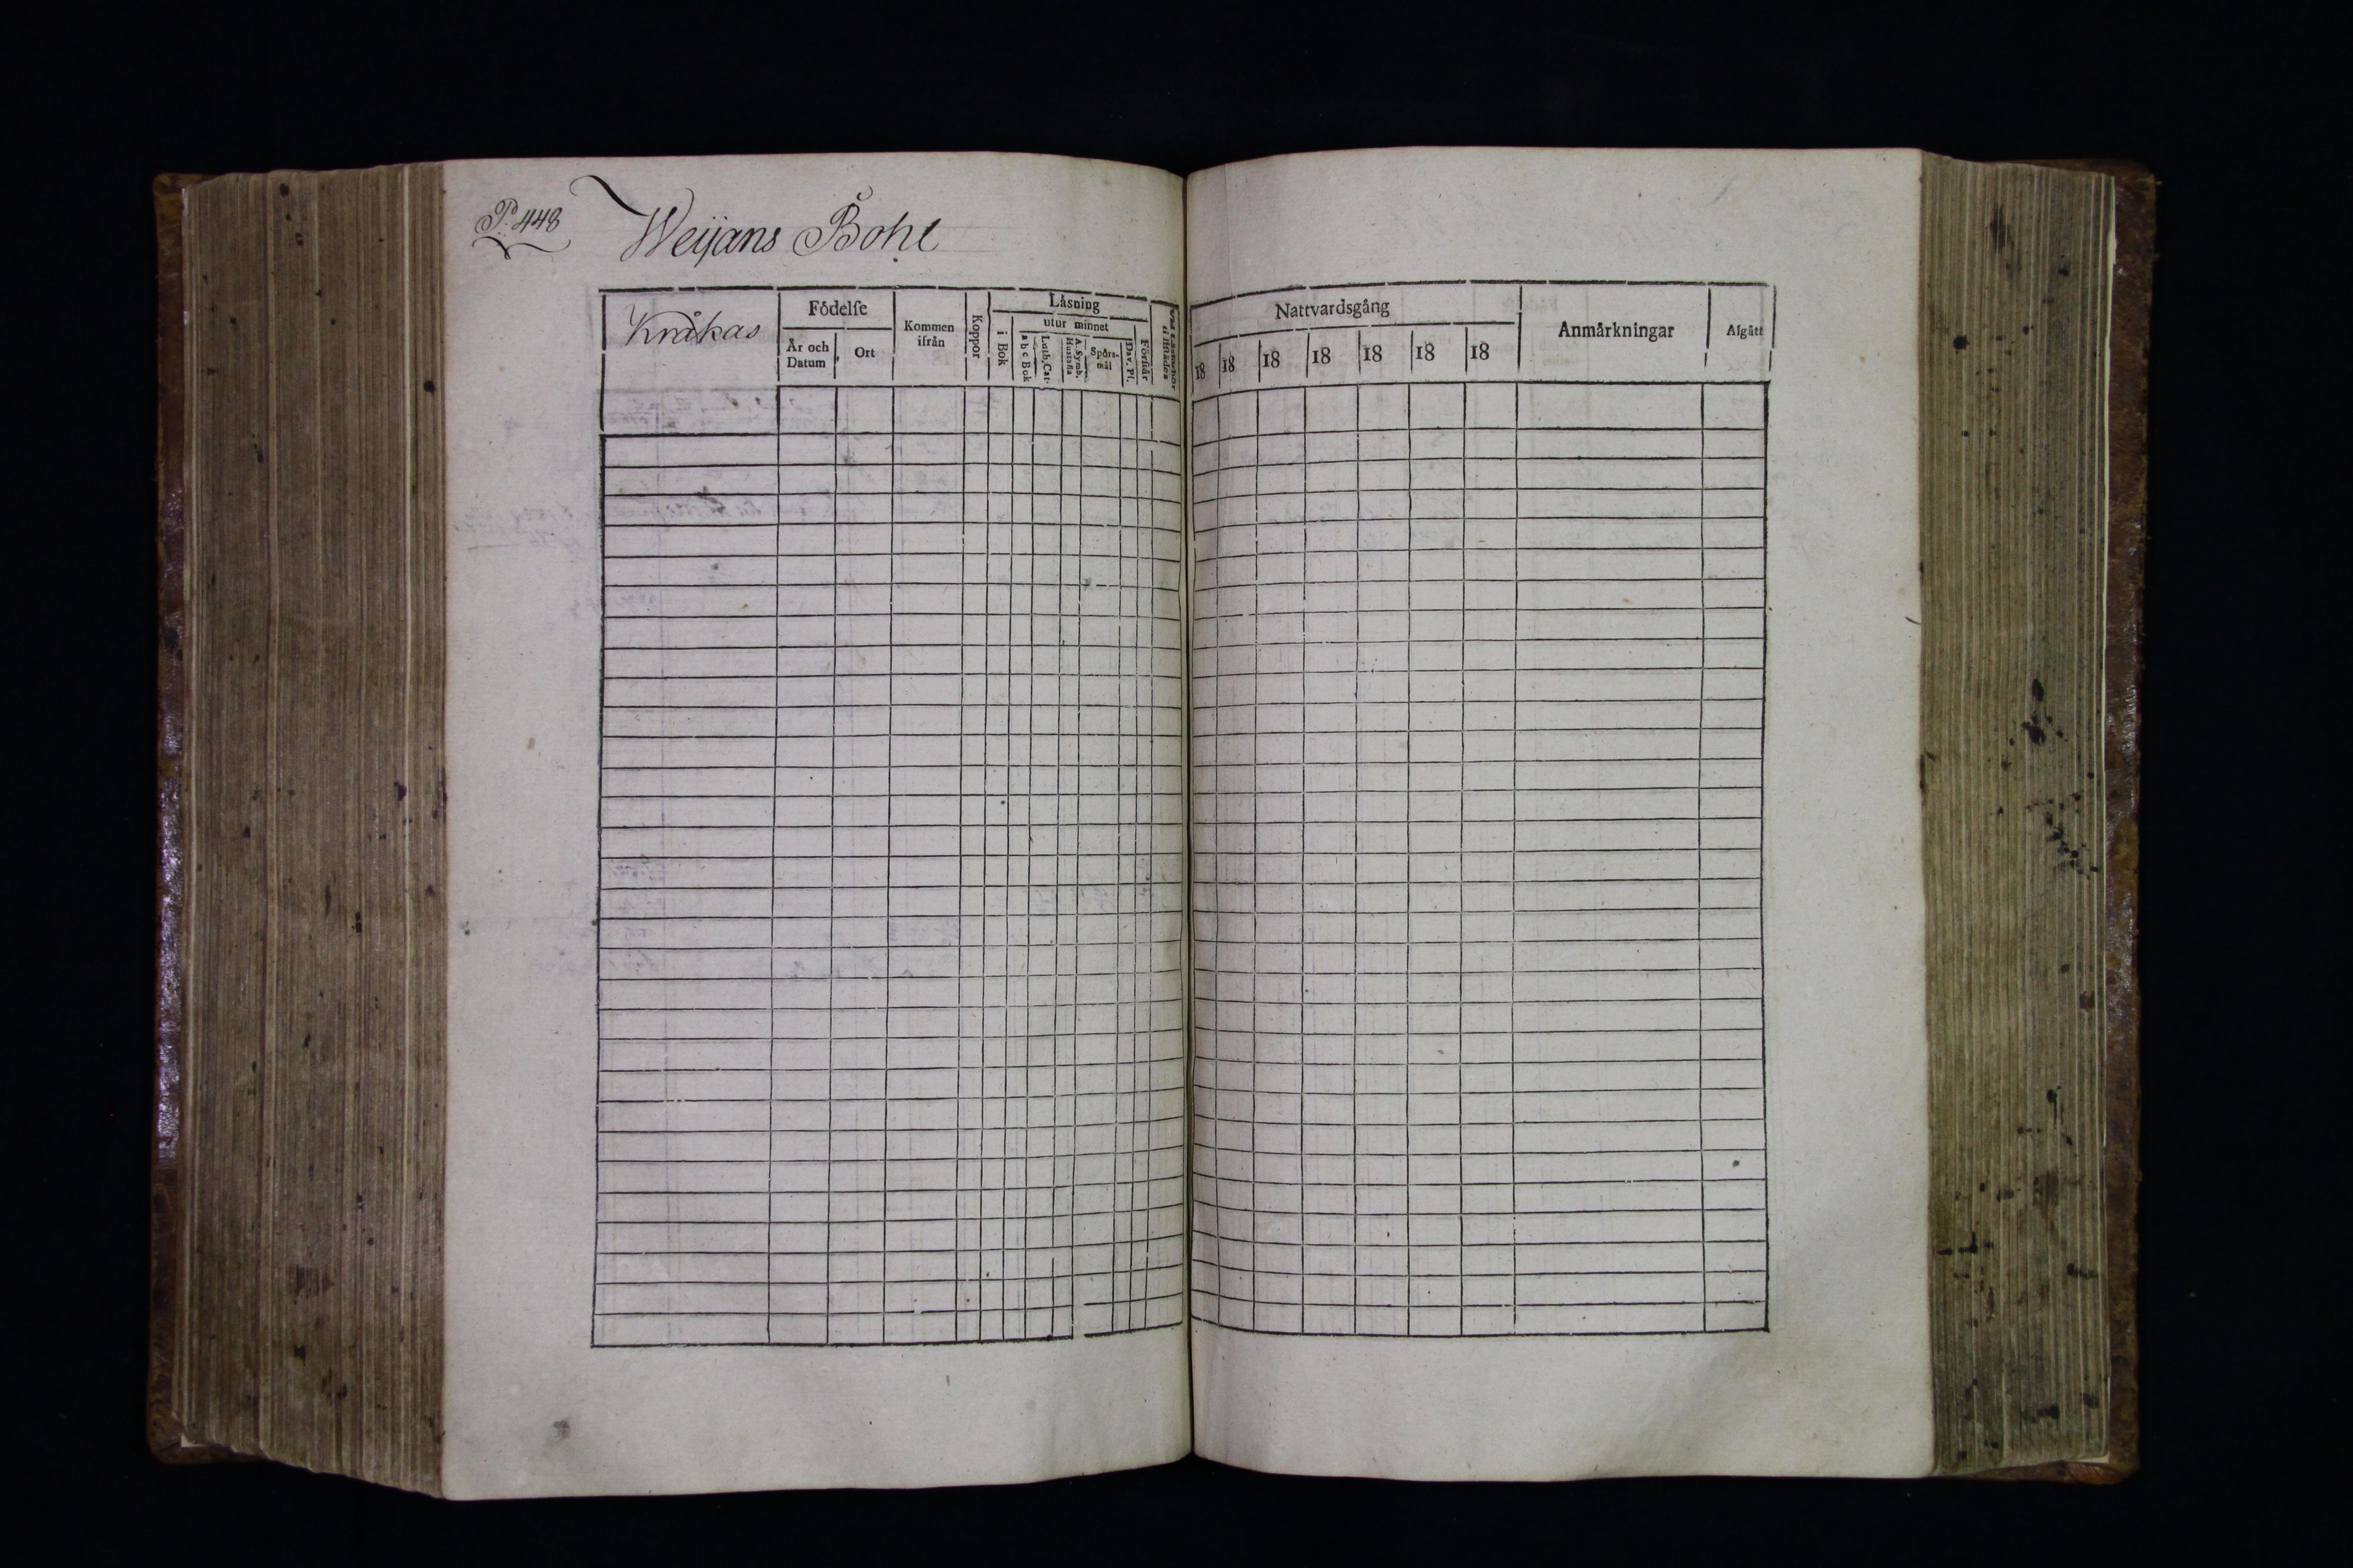 P. 448
Weijans Bohl
Kråkas
Födelse
År och Datum
Ort
Kommen ifrån
Koppor
Läsning
i Bok
utur minnet
a b c Bok
Luth. Cat.
A. Symb. Hustafla
Spörs-mål
Dav. Ps.
Förstår
Nattvardsgång
18 18 18 18 18 18 18
Anmärkningar
Afgått